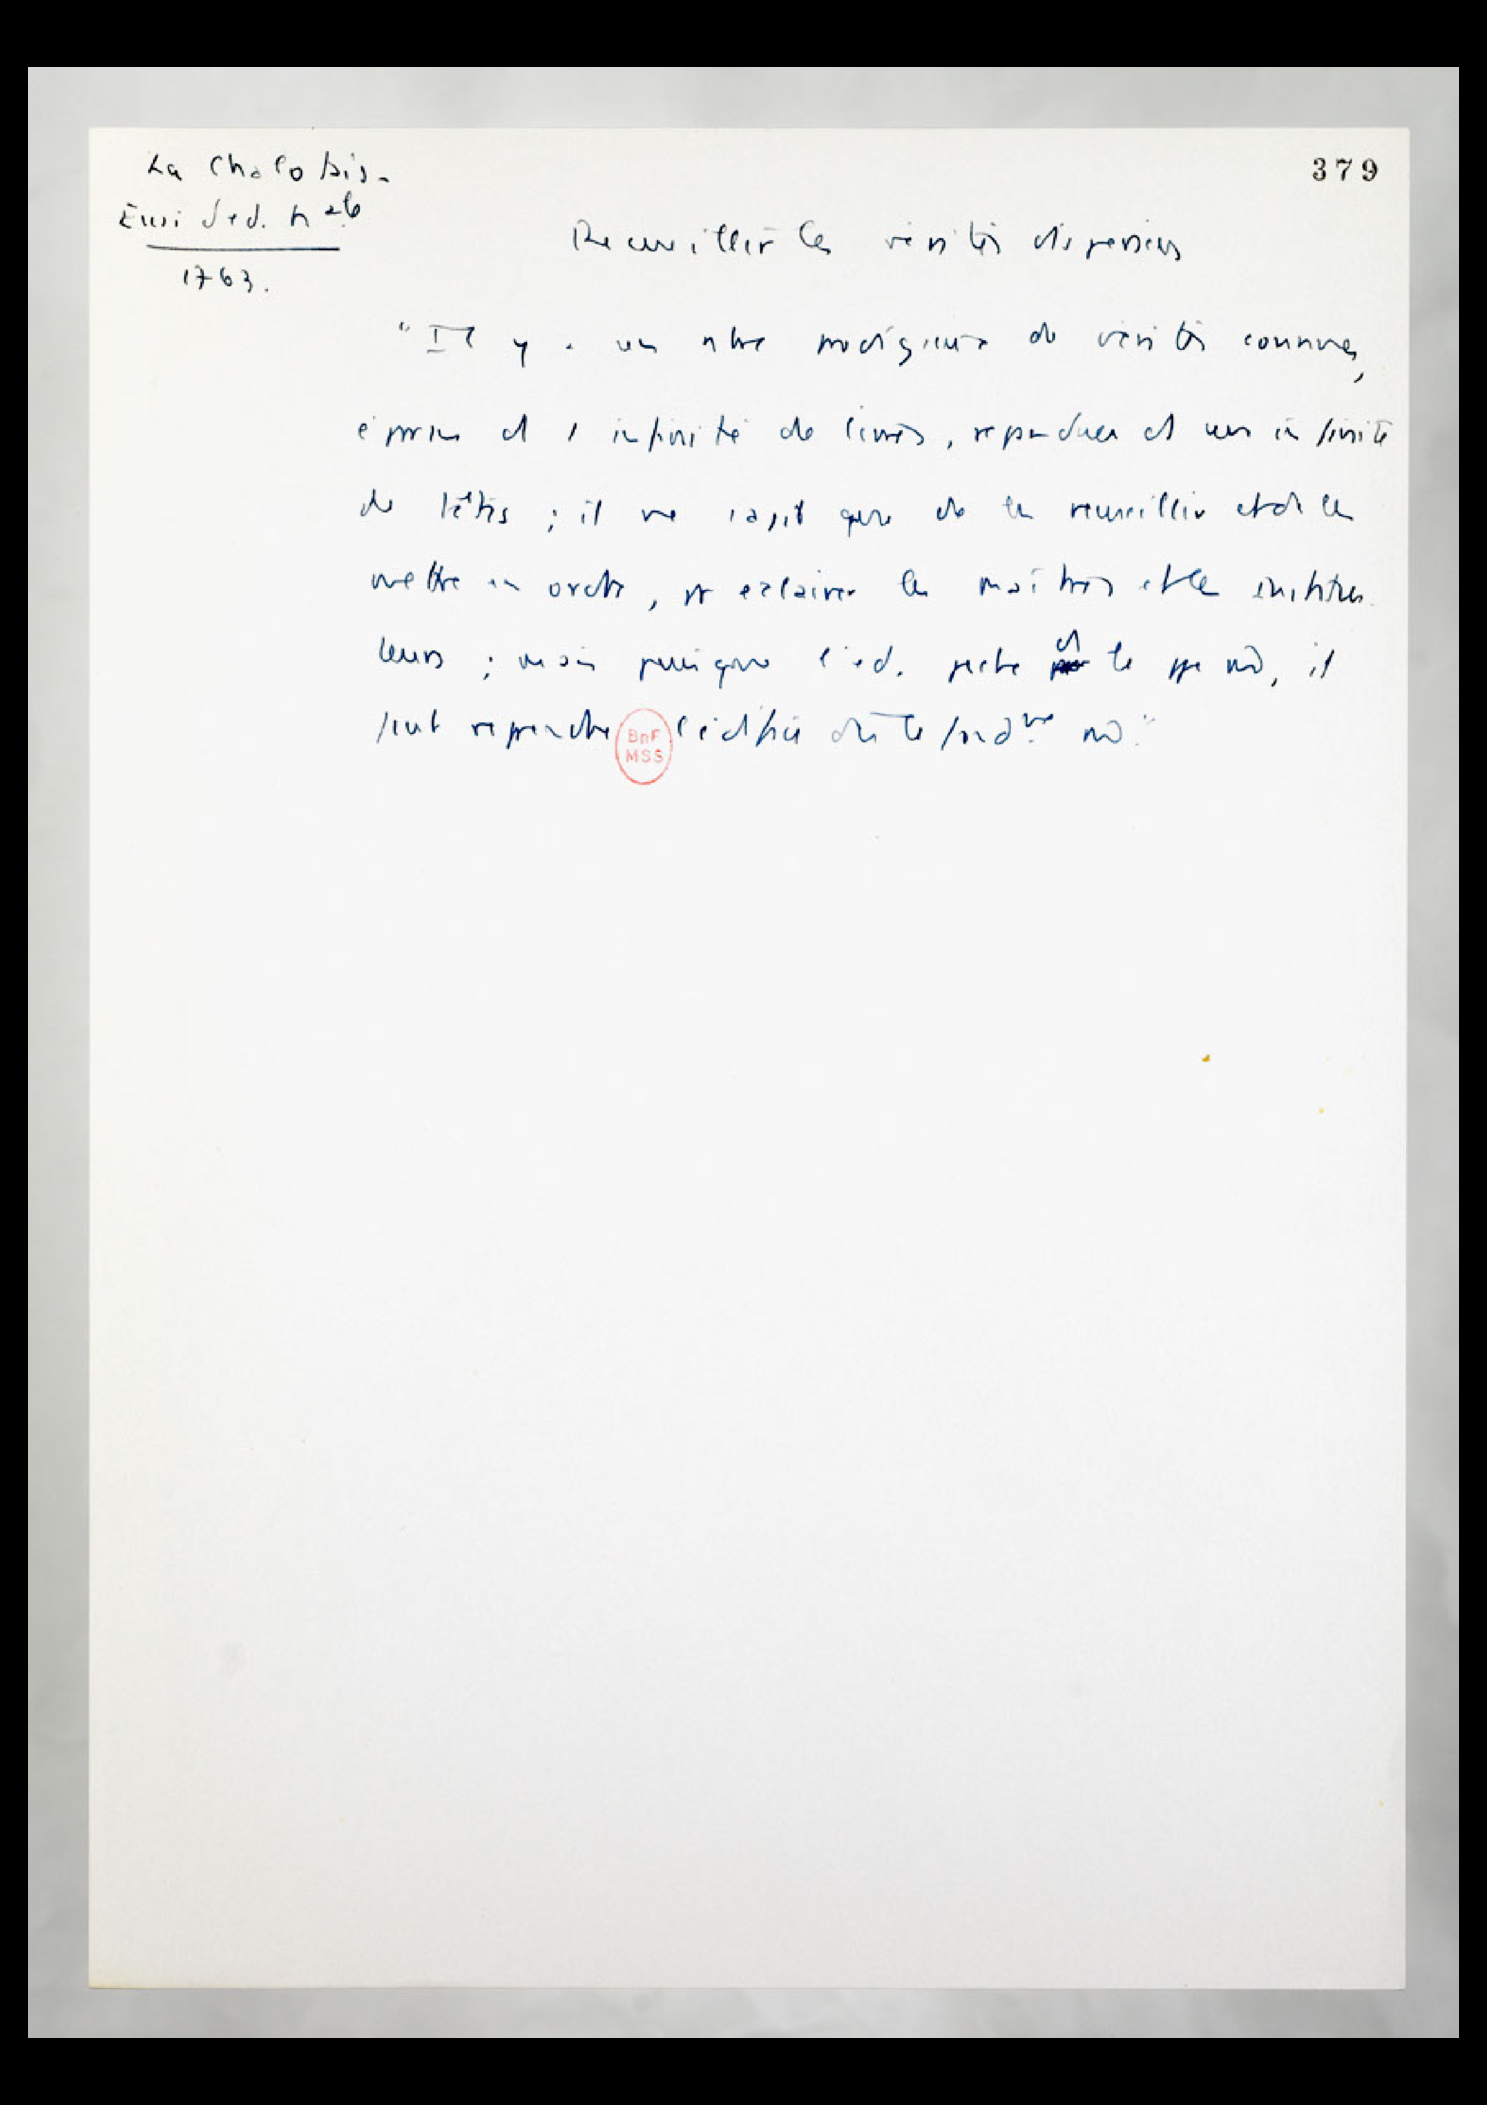 La Chalotais.
Essai d'ed. nale
1763.
379
Recueillir les vérités dispersées
"Il y a un nbre prodigieux de vérités connues,
éparses ds 1 infinité de livres, repandues ds une infinité
de têtes ; il ne s'agit que de les recueillir et de les
mettre en ordre, pr eclairer les maîtres et les institu-
teurs ; mais puisque l'ed. peche ds le ppe m̂, il
faut reprendre l'edifice dès le fondmt m̂."
BnF
MSS